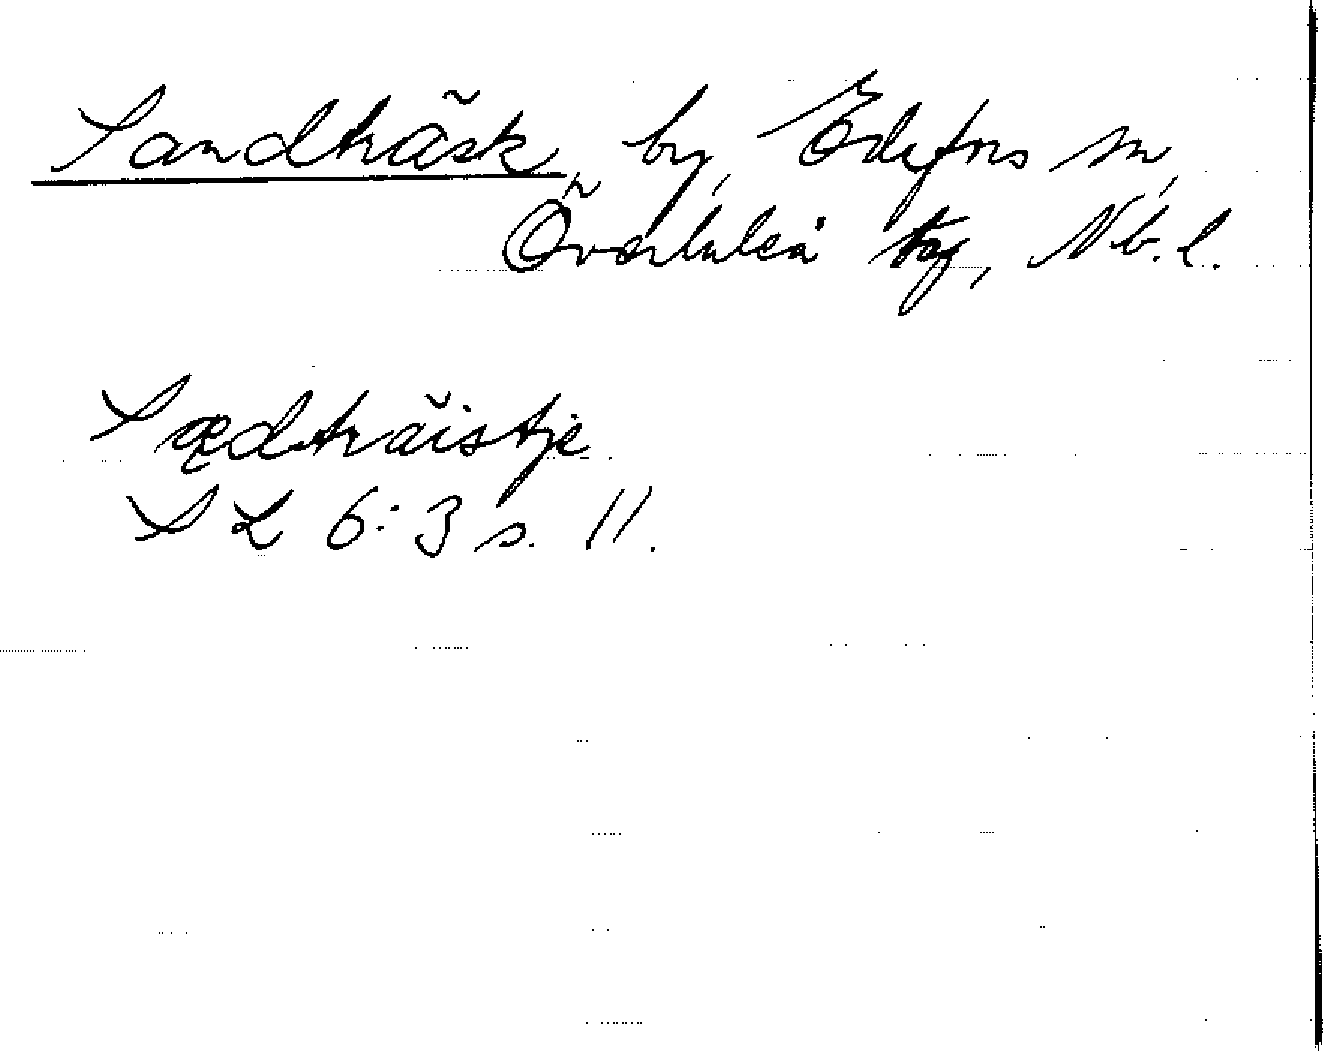 Sandträsk, by, Edefors sn,
Överluleå tg, Nb.l.
Sædträistje
SL 6:3 s. 11.